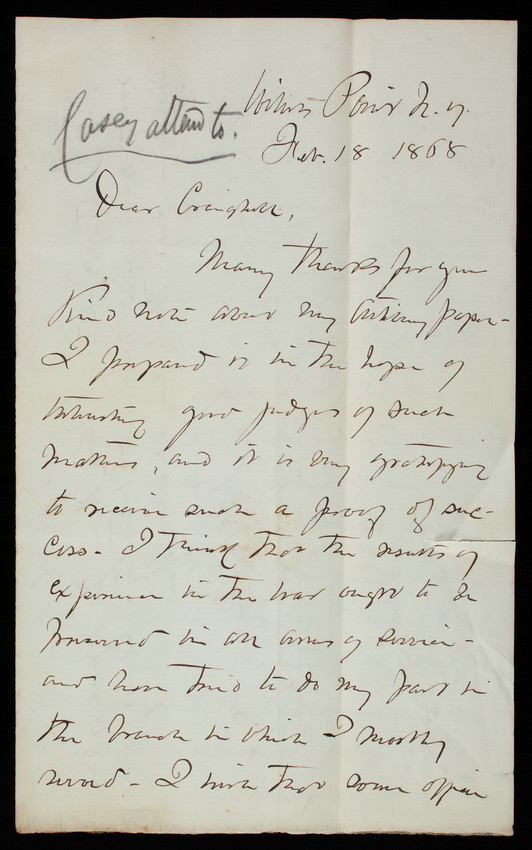 Casey attend to.
Willets Point N. Y.
Feb. 18 1868
Dear Craighill,
Many thanks for your
kind note about my Artillery paper -
I prepared it in the hope of
interesting good judges of such
matters, and it is very gratifying
to receive such a proof of suc-
cess - I think that the results of
experience in the war ought to be
preserved in all arms of service -
and have tried to do my part in
the branch in which I mostly
served - I wish that some officer